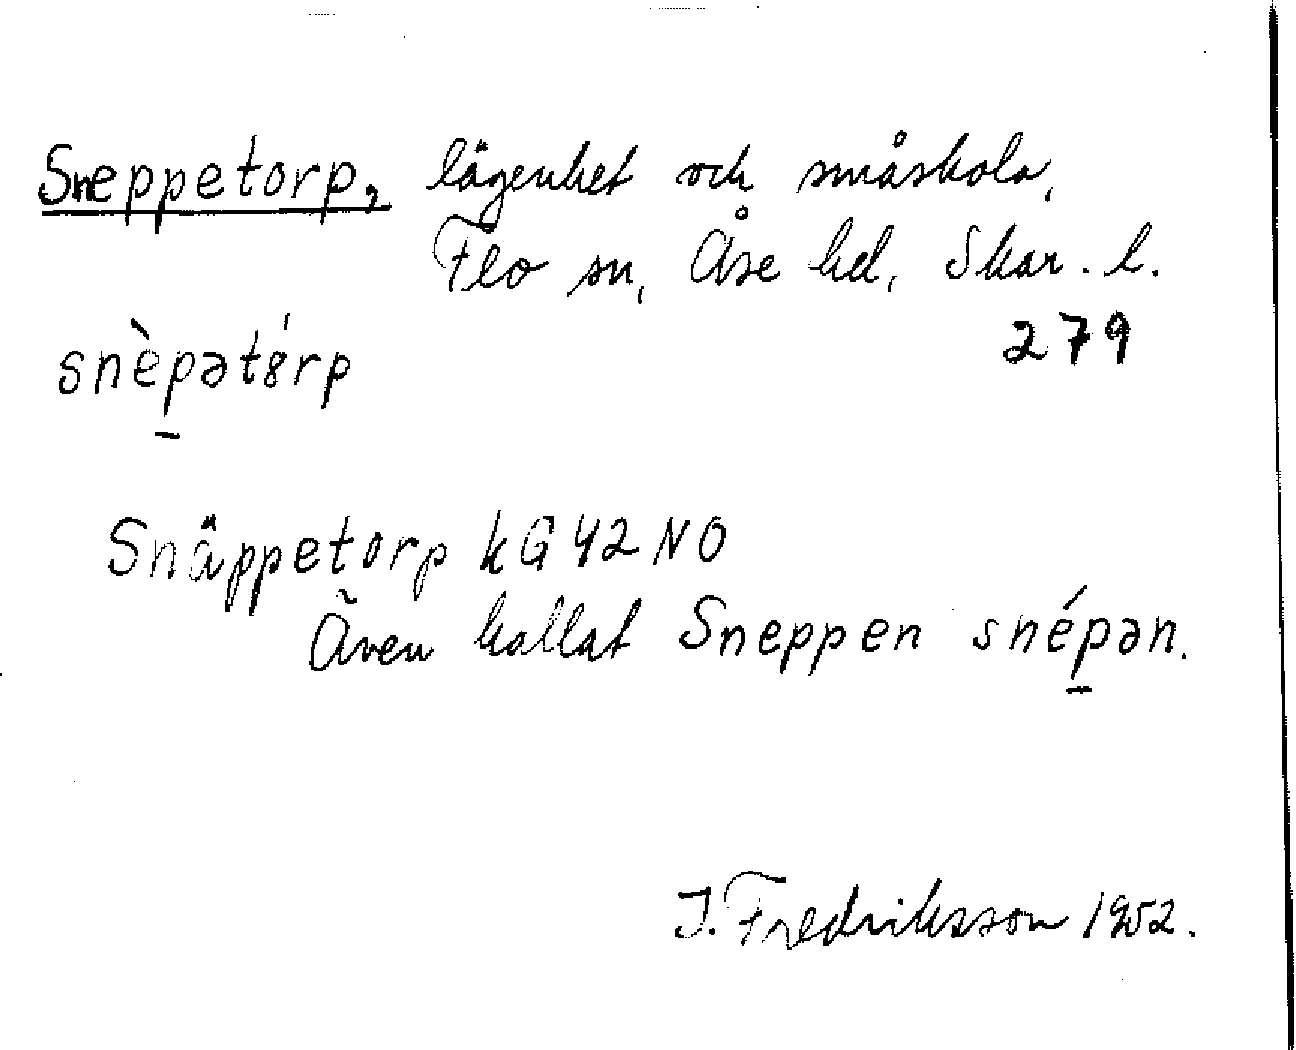 Sneppetorp, lägenhet och småskola,
Flo sn, Åse hd, Skar. l.
279
snèp̱ət8́rp
Snäppetorp kG 42 NO
Även kallat Sneppen snép̱ən.
I. Fredriksson 1952.